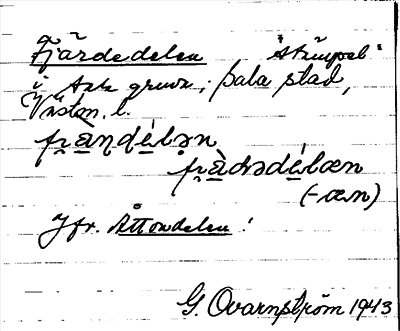 Fjärdedelen "Skrimpel"
i Sala gruva, Sala stad,
Västm. l.
fi̯ä̀ɳdélən
fi̯ä̀dədélæn
(-æn)
Jfr. Åttondelen!
G. Qvarnström 1943